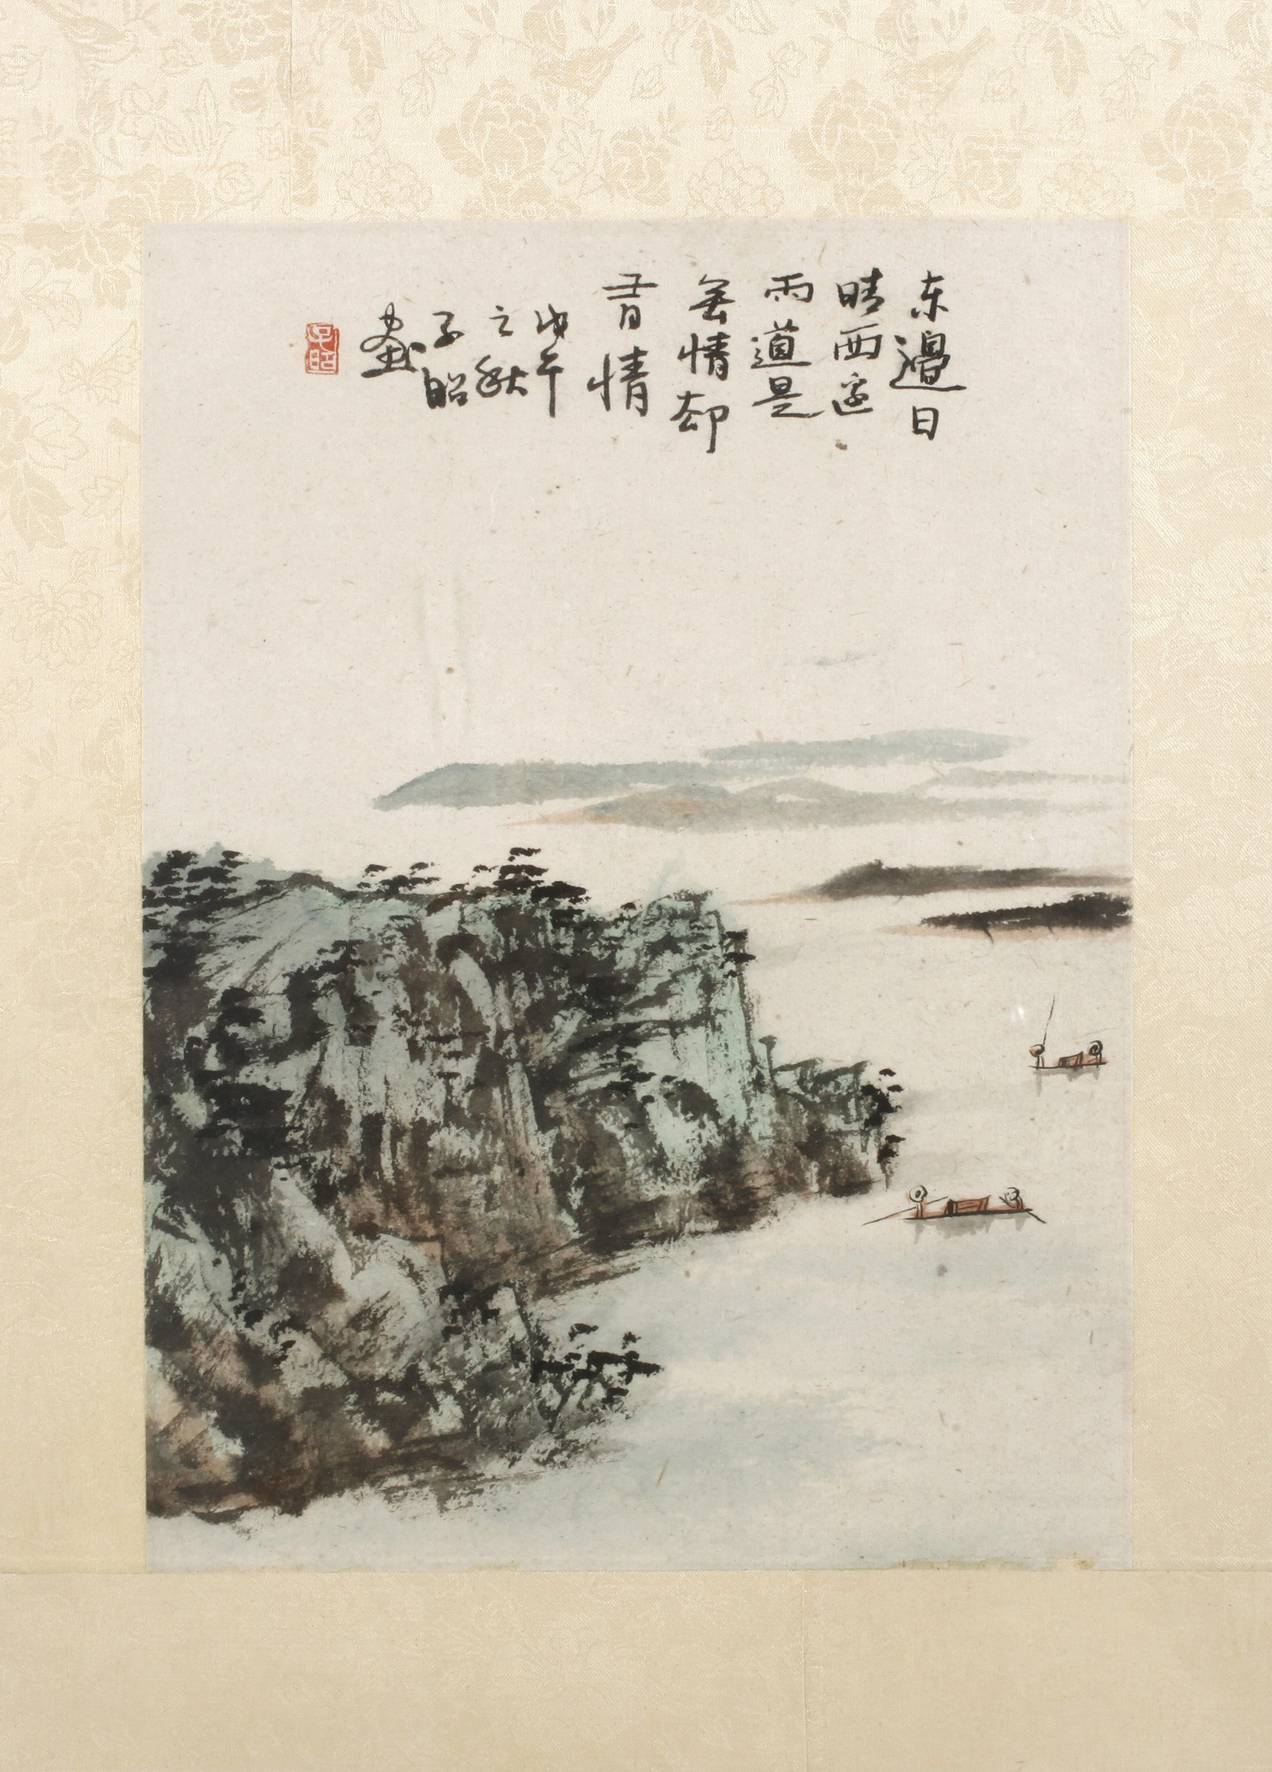 东邉日
晴西边
雨道是
無情却
有情
戊午
之秋
子昭
畫
子昭